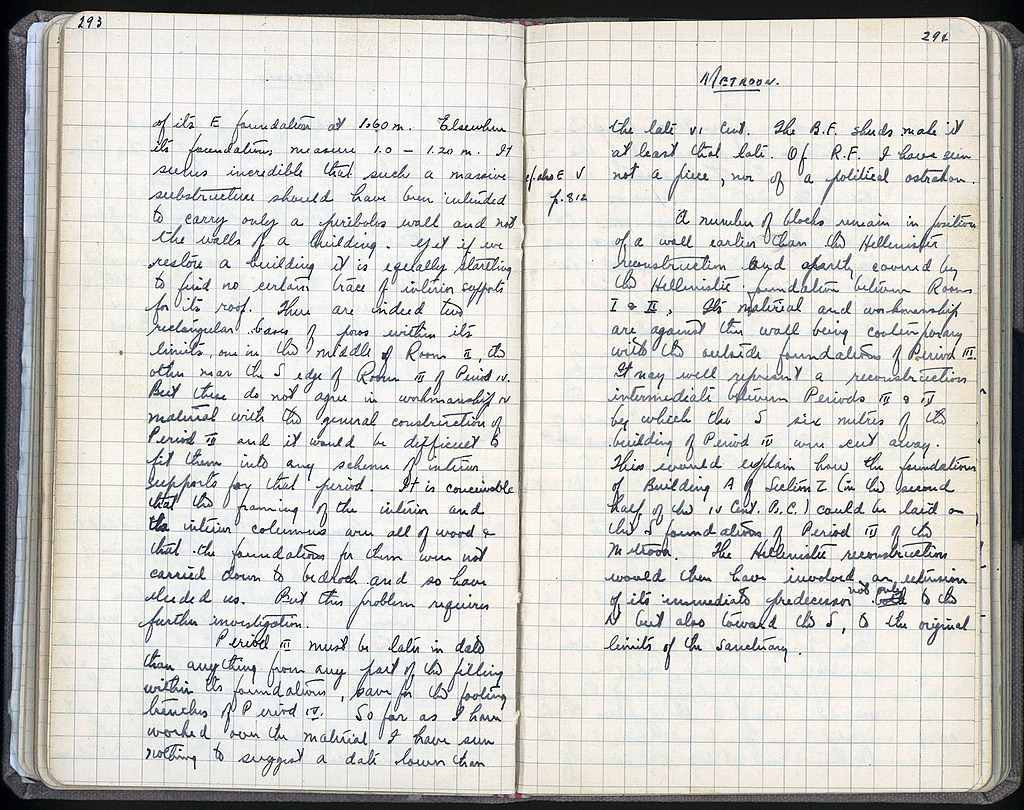 293
of its E foundation at 1.60 m. Elsewhere
its foundations measure 1.0 – 1.20 m. It
seems incredible that such a massive
substructure should have been intended
to carry only a peribolos wall and not
the walls of a building. Yet if we
restore a building it is equally startling
to find no certain trace of interior supports
for its roof. There are indeed two
rectangular bases of poros within its
limits, one in the middle of Room II, the
other near the S edge of Room III of Period IV.
But these do not agree in workmanship or
material with the general construction of
Period III and it would be difficult to
fit them into any scheme of interior
supports for that period. It is conceivable
that the framing of the interior and
the interior columns were all of wood &
that the foundations for them were not
carried down to bedrock and so have
eluded us. But this problem requires
further investigation.
Period III must be later in date
than anything from any part of the filling
within its foundations, save for the footing
trenches of Period IV. So far as I have
worked over the material I have seen
nothing to suggest a date lower than
294
Metroon.
the late VI Cent. The B.F. sherds make it
at least that late. Of R.F. I have seen
not a piece, nor of a political ostrakon.
cf. also E V
p. 812
A number of blocks remain in position
of a wall earlier than the Hellenistic
reconstruction and partly covered by
the Hellenistic foundation between Rooms
I & II. Its material and workmanship
are against this wall being contemporary
with the outside foundations of Period III.
It may well represent a reconstruction
intermediate between Periods III & IV
by which the S six metres of the
building of Period III were cut away.
This would explain how the foundations
of Building A of Section Z (in the second
half of the IV Cent. B.C.) could be laid on
the S foundations of Period III of the
Metroon. The Hellenistic reconstruction
would then have involved an extension
of its immediate predecessor not only to the
N but also toward the S, to the original
limits of the Sanctuary.